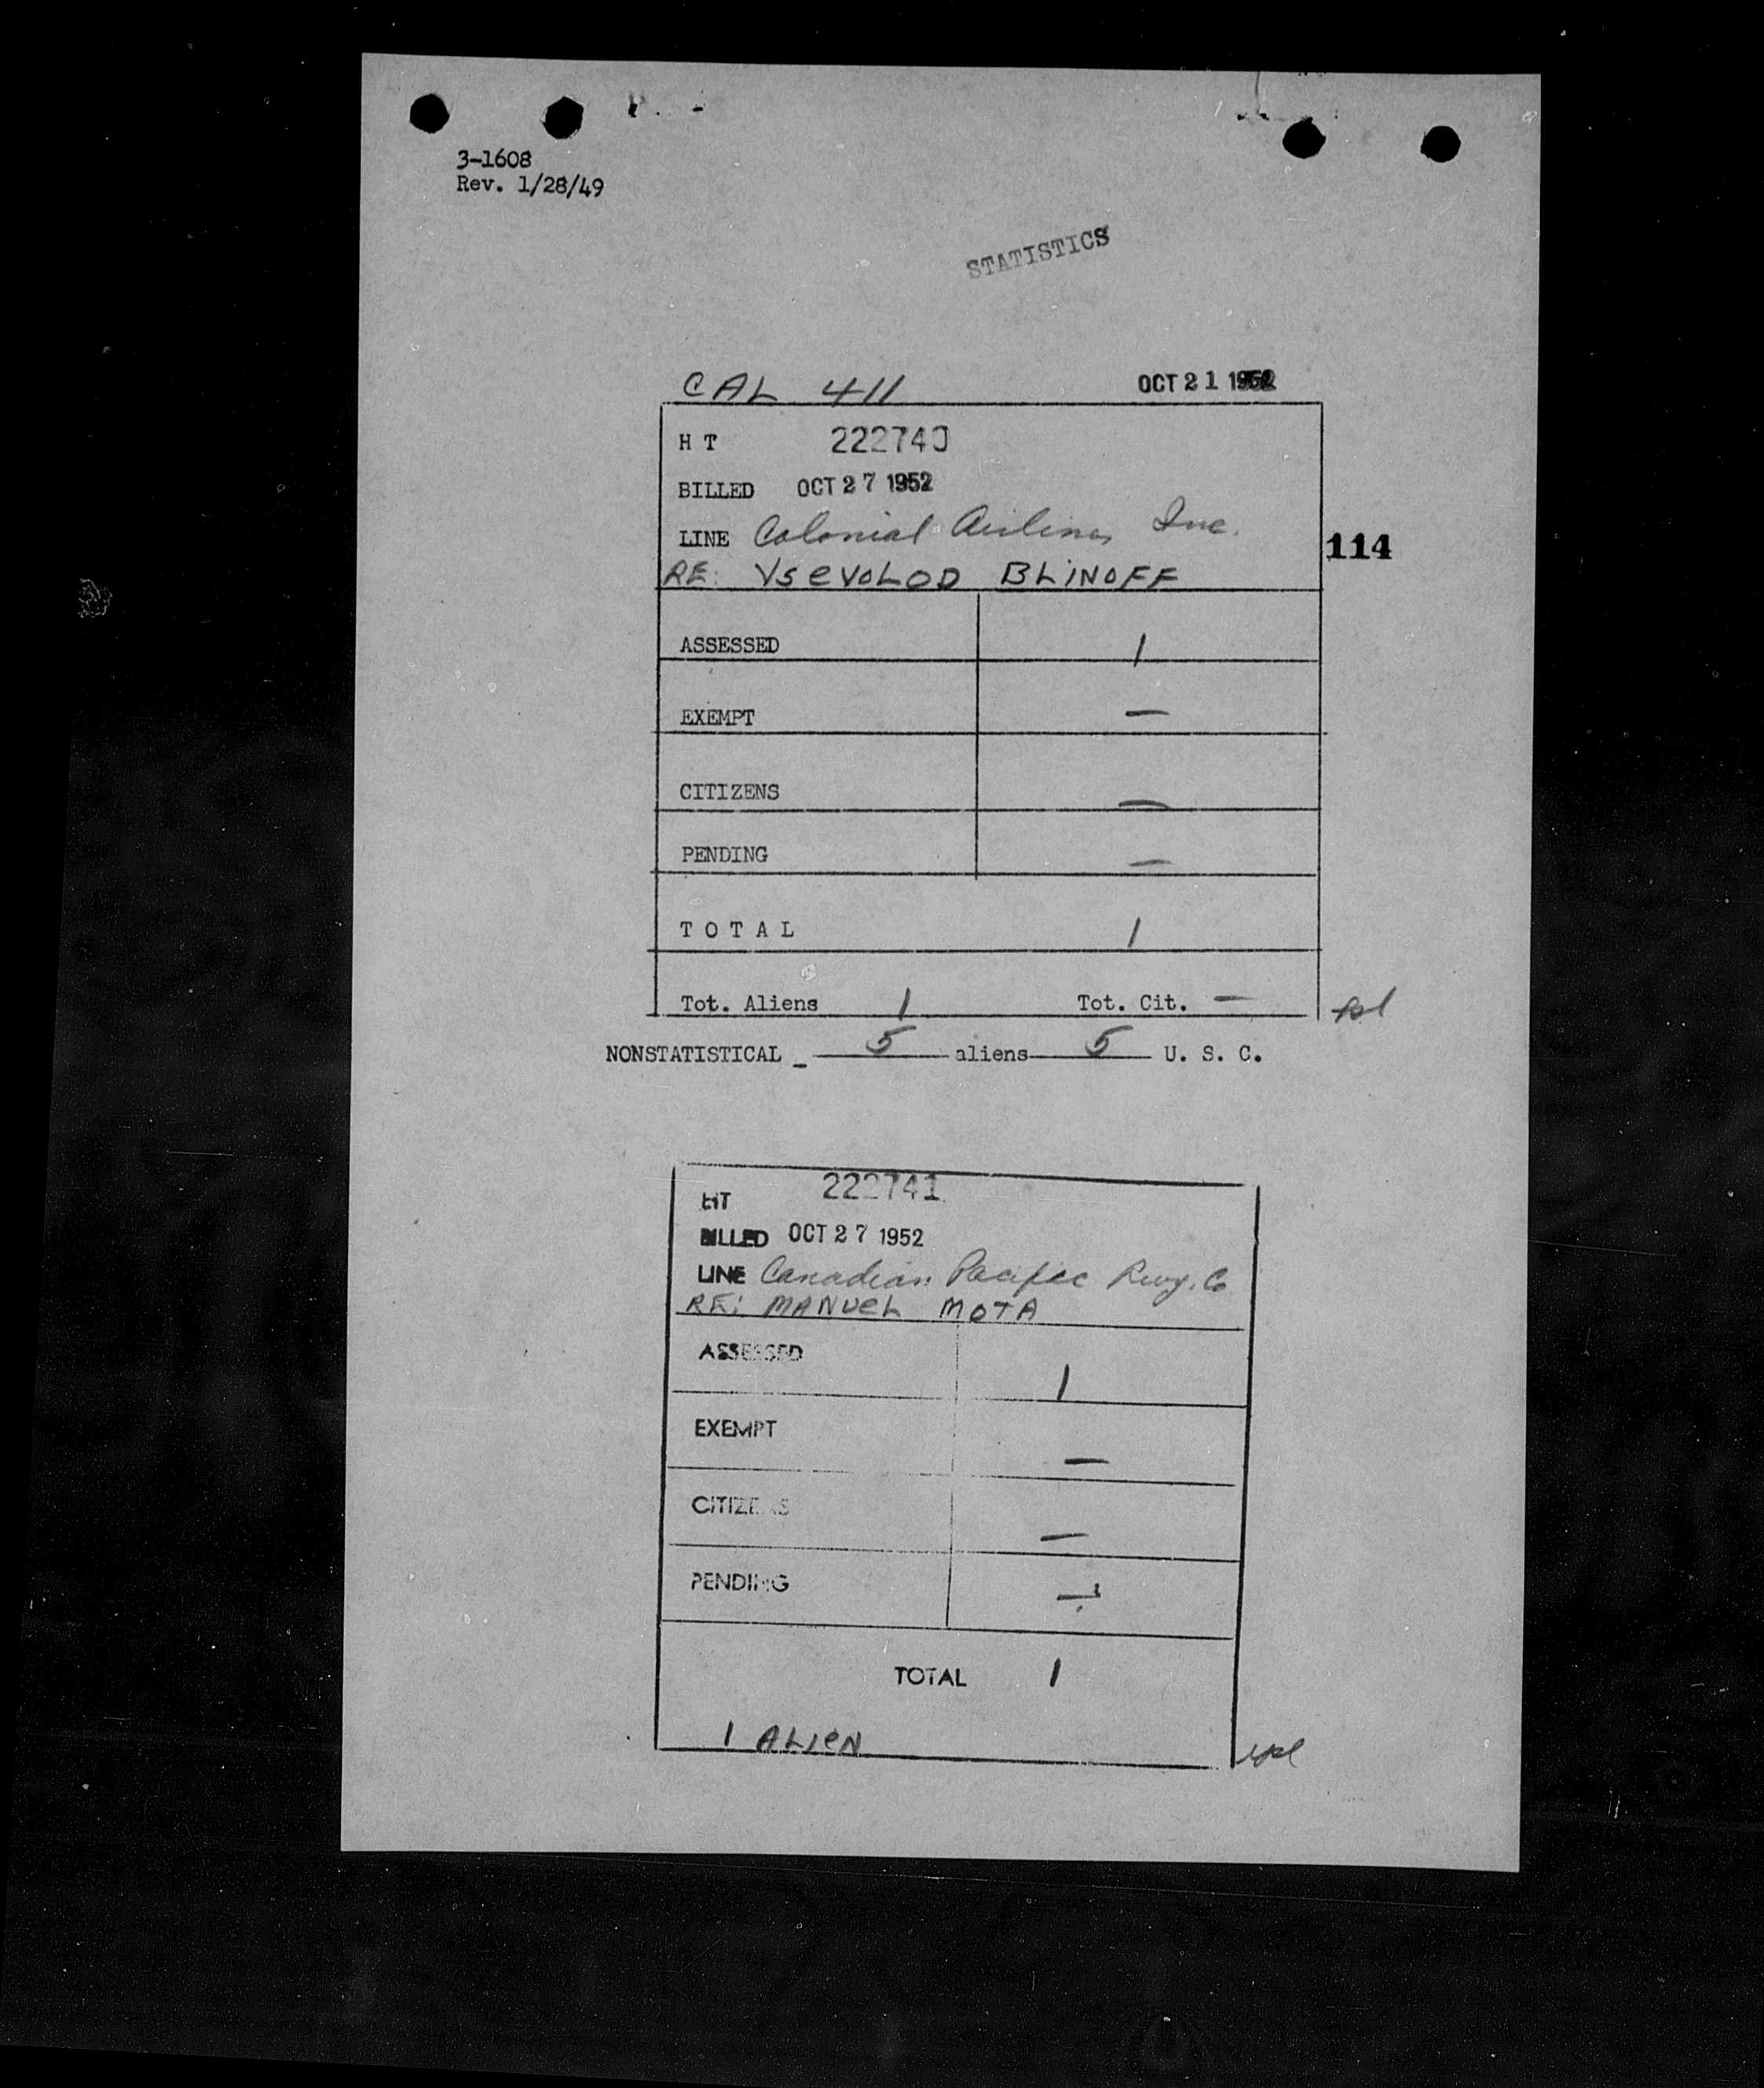 3-1608
Rev. 1/28/49
STATISTICS
CAL 411 OCT 21 1952
H T 222740
BILLED OCT 27 1952
LINE Colonial Airlines Inc.
114
RE: VSEVOLOD BLINOFF
ASSESSED 1
EXEMPT —
CITIZENS —
PENDING —
T O T A L 1
Tot. Aliens 1 Tot. Cit. —
NONSTATISTICAL - 5 aliens 5 U. S. C.
HT 222741
BILLED OCT 27 1952
LINE Canadian Pacific Rwy. Co
RE: MANUEL MOTA
ASSESSED 1
EXEMPT —
CITIZENS —
PENDING —
TOTAL 1
1 ALIEN